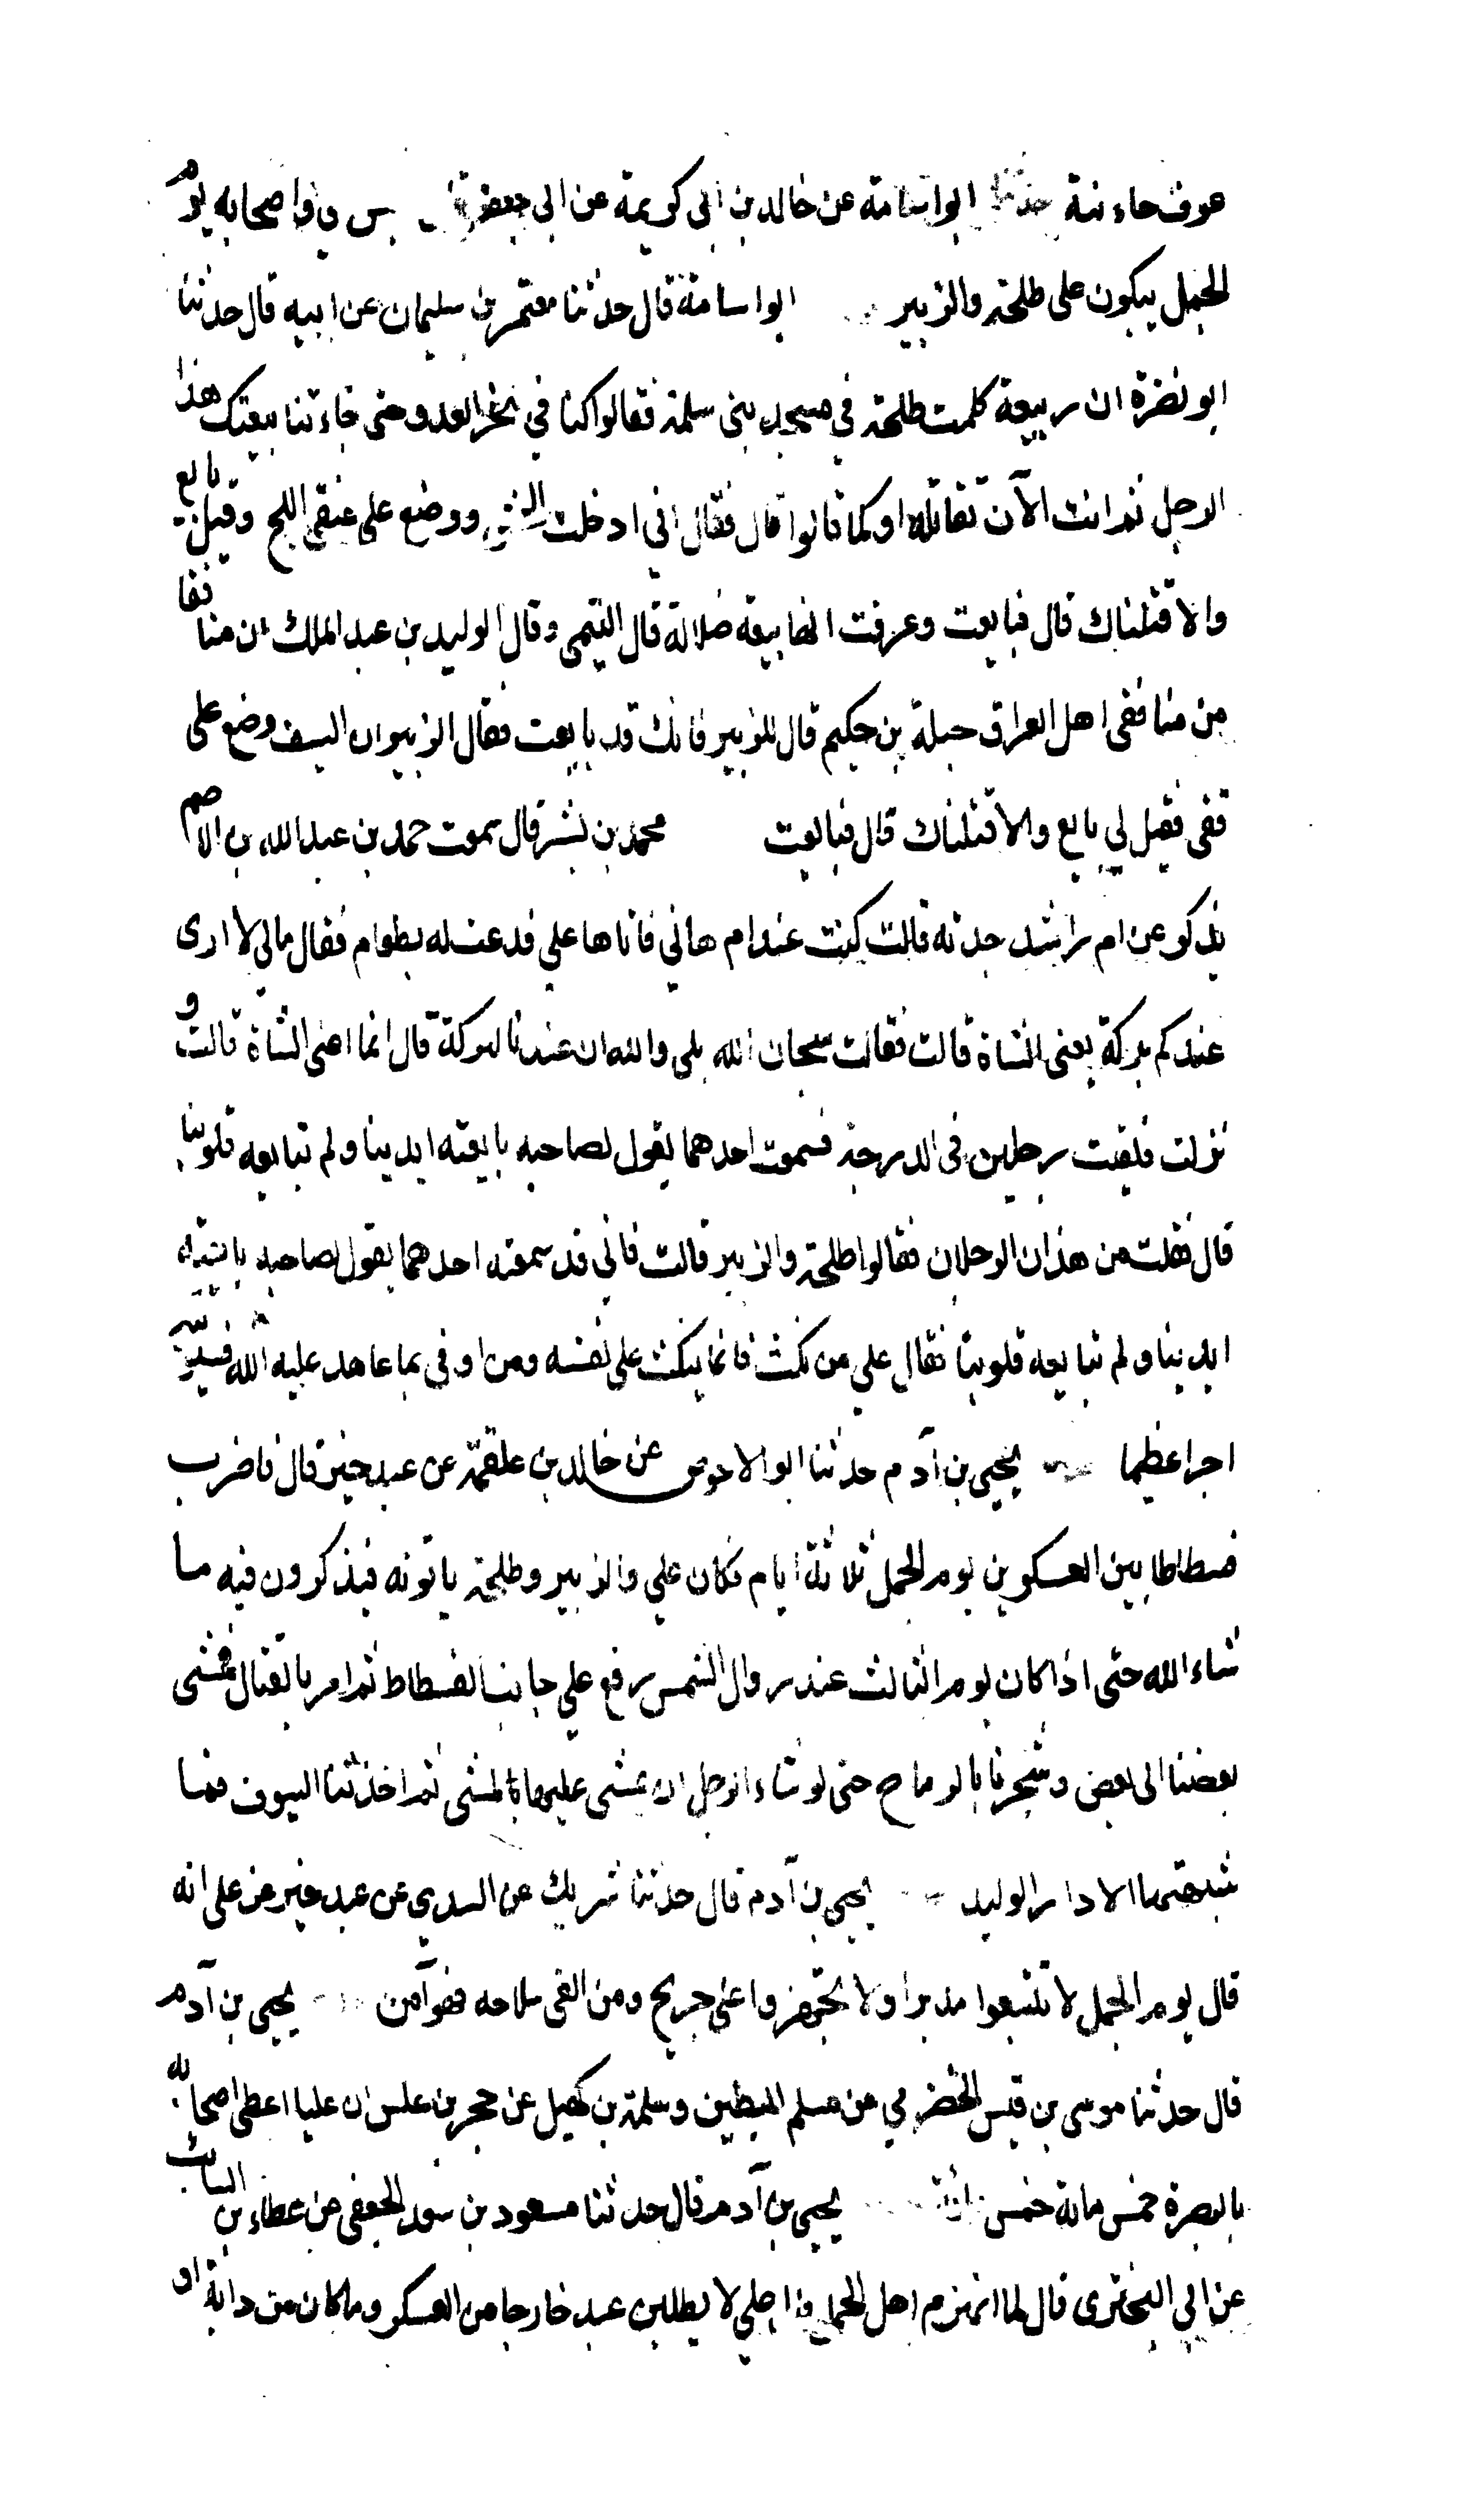 عوف حاء نثة حدثنا ابو اسامة عن خالد بن ابى كريمة عن ابى جعفر قال جلس علي واصحابه يوم
الجمل يبكون على طلحة والزبير ابو اسامة قال حدثنا معتمر بن سليمان عن ابيه قال حدثنا
ابو نضرة ان ربيعة كلمت طلحة في مسجد بنى سلمة فقالوا كنا في نحر العدو حتى جاءتنا بيعتك هذا
الرجل ثم انت الآن تقاتله او كما قالوا قال فقال انى ادخلت الحش ووضع على عنقى اللج وقيل بايع
والا قتلناك قال فبايعت وعرفت انها بيعة ضلالة قال التيمى وقال الوليد بن عبد الملك ان منافقا
من منافقى اهل العراق جبلة بن حكيم قال للزبير فانك قد بايعت فقال الزبير ان السيف وضع على
قفى فقيل لي بايع والا قتلناك قال فبايعت محمد بن بشر قال سمعت حمد بن عبد الله بن الاصم
يذكر عن ام راشد جدته قالت كنت عند ام هاني فاتاها علي فدعت له بطعام فقال مالي لا ارى
عندكم بركة يعنى الشاة قالت فقالت سبحان الله بلى والله ان عندنا لبركة قال انما اعنى الشاة قالت و
نزلت فلقيت رجلين فى الدرجة فسمعت احدهما يقول لصاحبه بايعته ايدينا ولم تبايعه قلوبنا
قال فقلت من هذان الرجلان فقالوا طلحة والزبير قالت فانى قد سمعت احدهما يقول لصاحبه بايعته
ايدينا ولم تبايعه قلوبنا فقال علي من نكث فانما ينكث على نفسه ومن اوفى بما عاهد عليه الله فسيؤتيه
اجرا عظيما يحيى بن آدم حدثنا ابو الاحوص عن خالد بن علقمة عن عبد خير قال فاضرب
فسطاطا بين العسكرين يوم الجمل ثلاثة ايام فكان علي والزبير وطلحة ياتونه فيذكرون فيه ما
شاء الله حتى اذا كان يوم الثالث عند زوال الشمس رفع علي جانب الفسطاط ثم امر بالقتال فمشى
بعضنا الى بعض وشجرنا بالرماح حتى لو شاء الرجل ان يمشى عليها لمشى ثم اخذتنا السيوف فما
شبهتها الا دار الوليد يحيى بن آدم قال حدثنا شريك عن السدي عن عبد خير عن على انه
قال يوم الجمل لا تتبعوا مدبرا ولا تجهزوا على جريح ومن القى سلاحه فهو آمن يحيى بن آدم
قال حدثنا موسى بن قيس الحضرمي عن مسلم البطين وسلمة بن كهيل عن حجر بن عنبس ان عليا اعطى اصحابه
بالبصرة خمس مائة خمس مائة يحيى بن آدم قال حدثنا مسعود بن سعد الجعفى عن عطاء بن السائب
عن ابي البخترى قال لما انهزم اهل الجمل قال علي لا يطلبن عبد خارجا من العسكر وما كان من دابة او